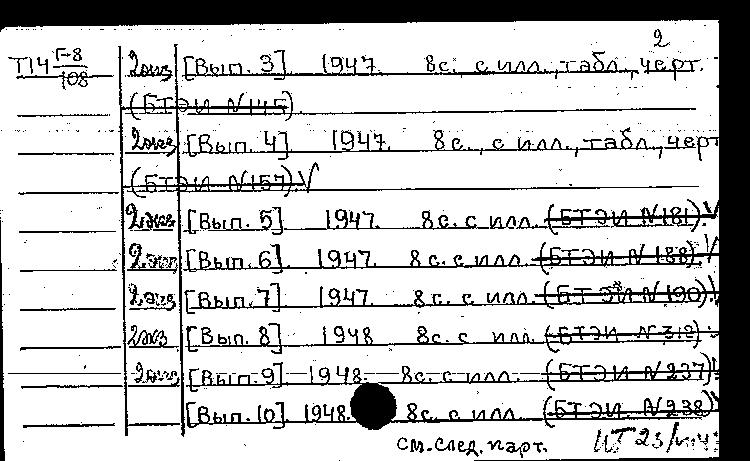 2
Т14 Г-8/108 2экз [Вып. 3] 1947. 8с. с илл., табл., черт.
(БТЭИ №145)
2экз [Вып. 4] 1947. 8с., с илл., табл., черт
(БТЭИ №157) √
2экз [Вып. 5] 1947. 8с. с илл. (БТЭИ №181) √
2экз [Вып. 6] 1947. 8с. с илл. (БТЭИ №188) √
2экз [Вып. 7] 1947. 8с. с илл. (БТЭИ №190) √
2экз [Вып. 8] 1948 8с. с илл. (БТЭИ №318)
2экз [Вып. 9] 1948. 8с. с илл. (БТЭИ №237)
[Вып. 10] 1948. 8с. с илл. (БТЭИ №238)
см. след. карт.